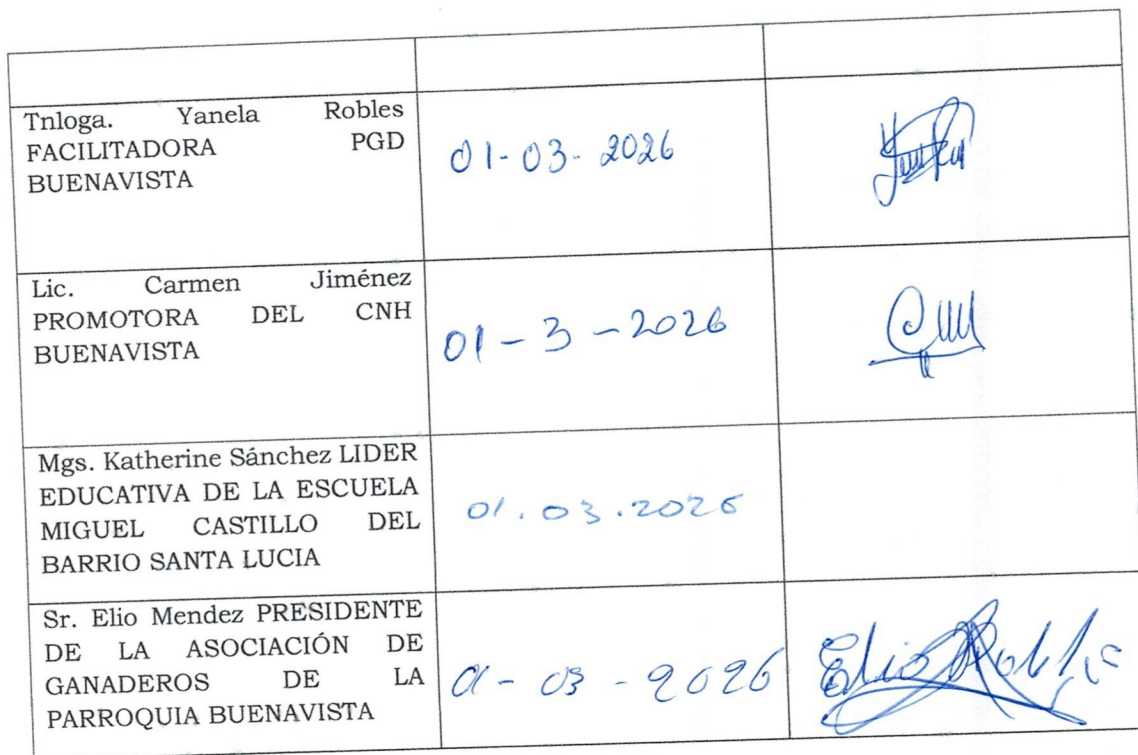 Tnloga. Yanela Robles
FACILITADORA PGD
BUENAVISTA
01-03-2026
Lic. Carmen Jiménez
PROMOTORA DEL CNH
BUENAVISTA
01-3-2026
Mgs. Katherine Sánchez LIDER
EDUCATIVA DE LA ESCUELA
MIGUEL CASTILLO DEL
BARRIO SANTA LUCIA
01.03.2026
Sr. Elio Mendez PRESIDENTE
DE LA ASOCIACIÓN DE
GANADEROS DE LA
PARROQUIA BUENAVISTA
01-03-2026
Elio Robles